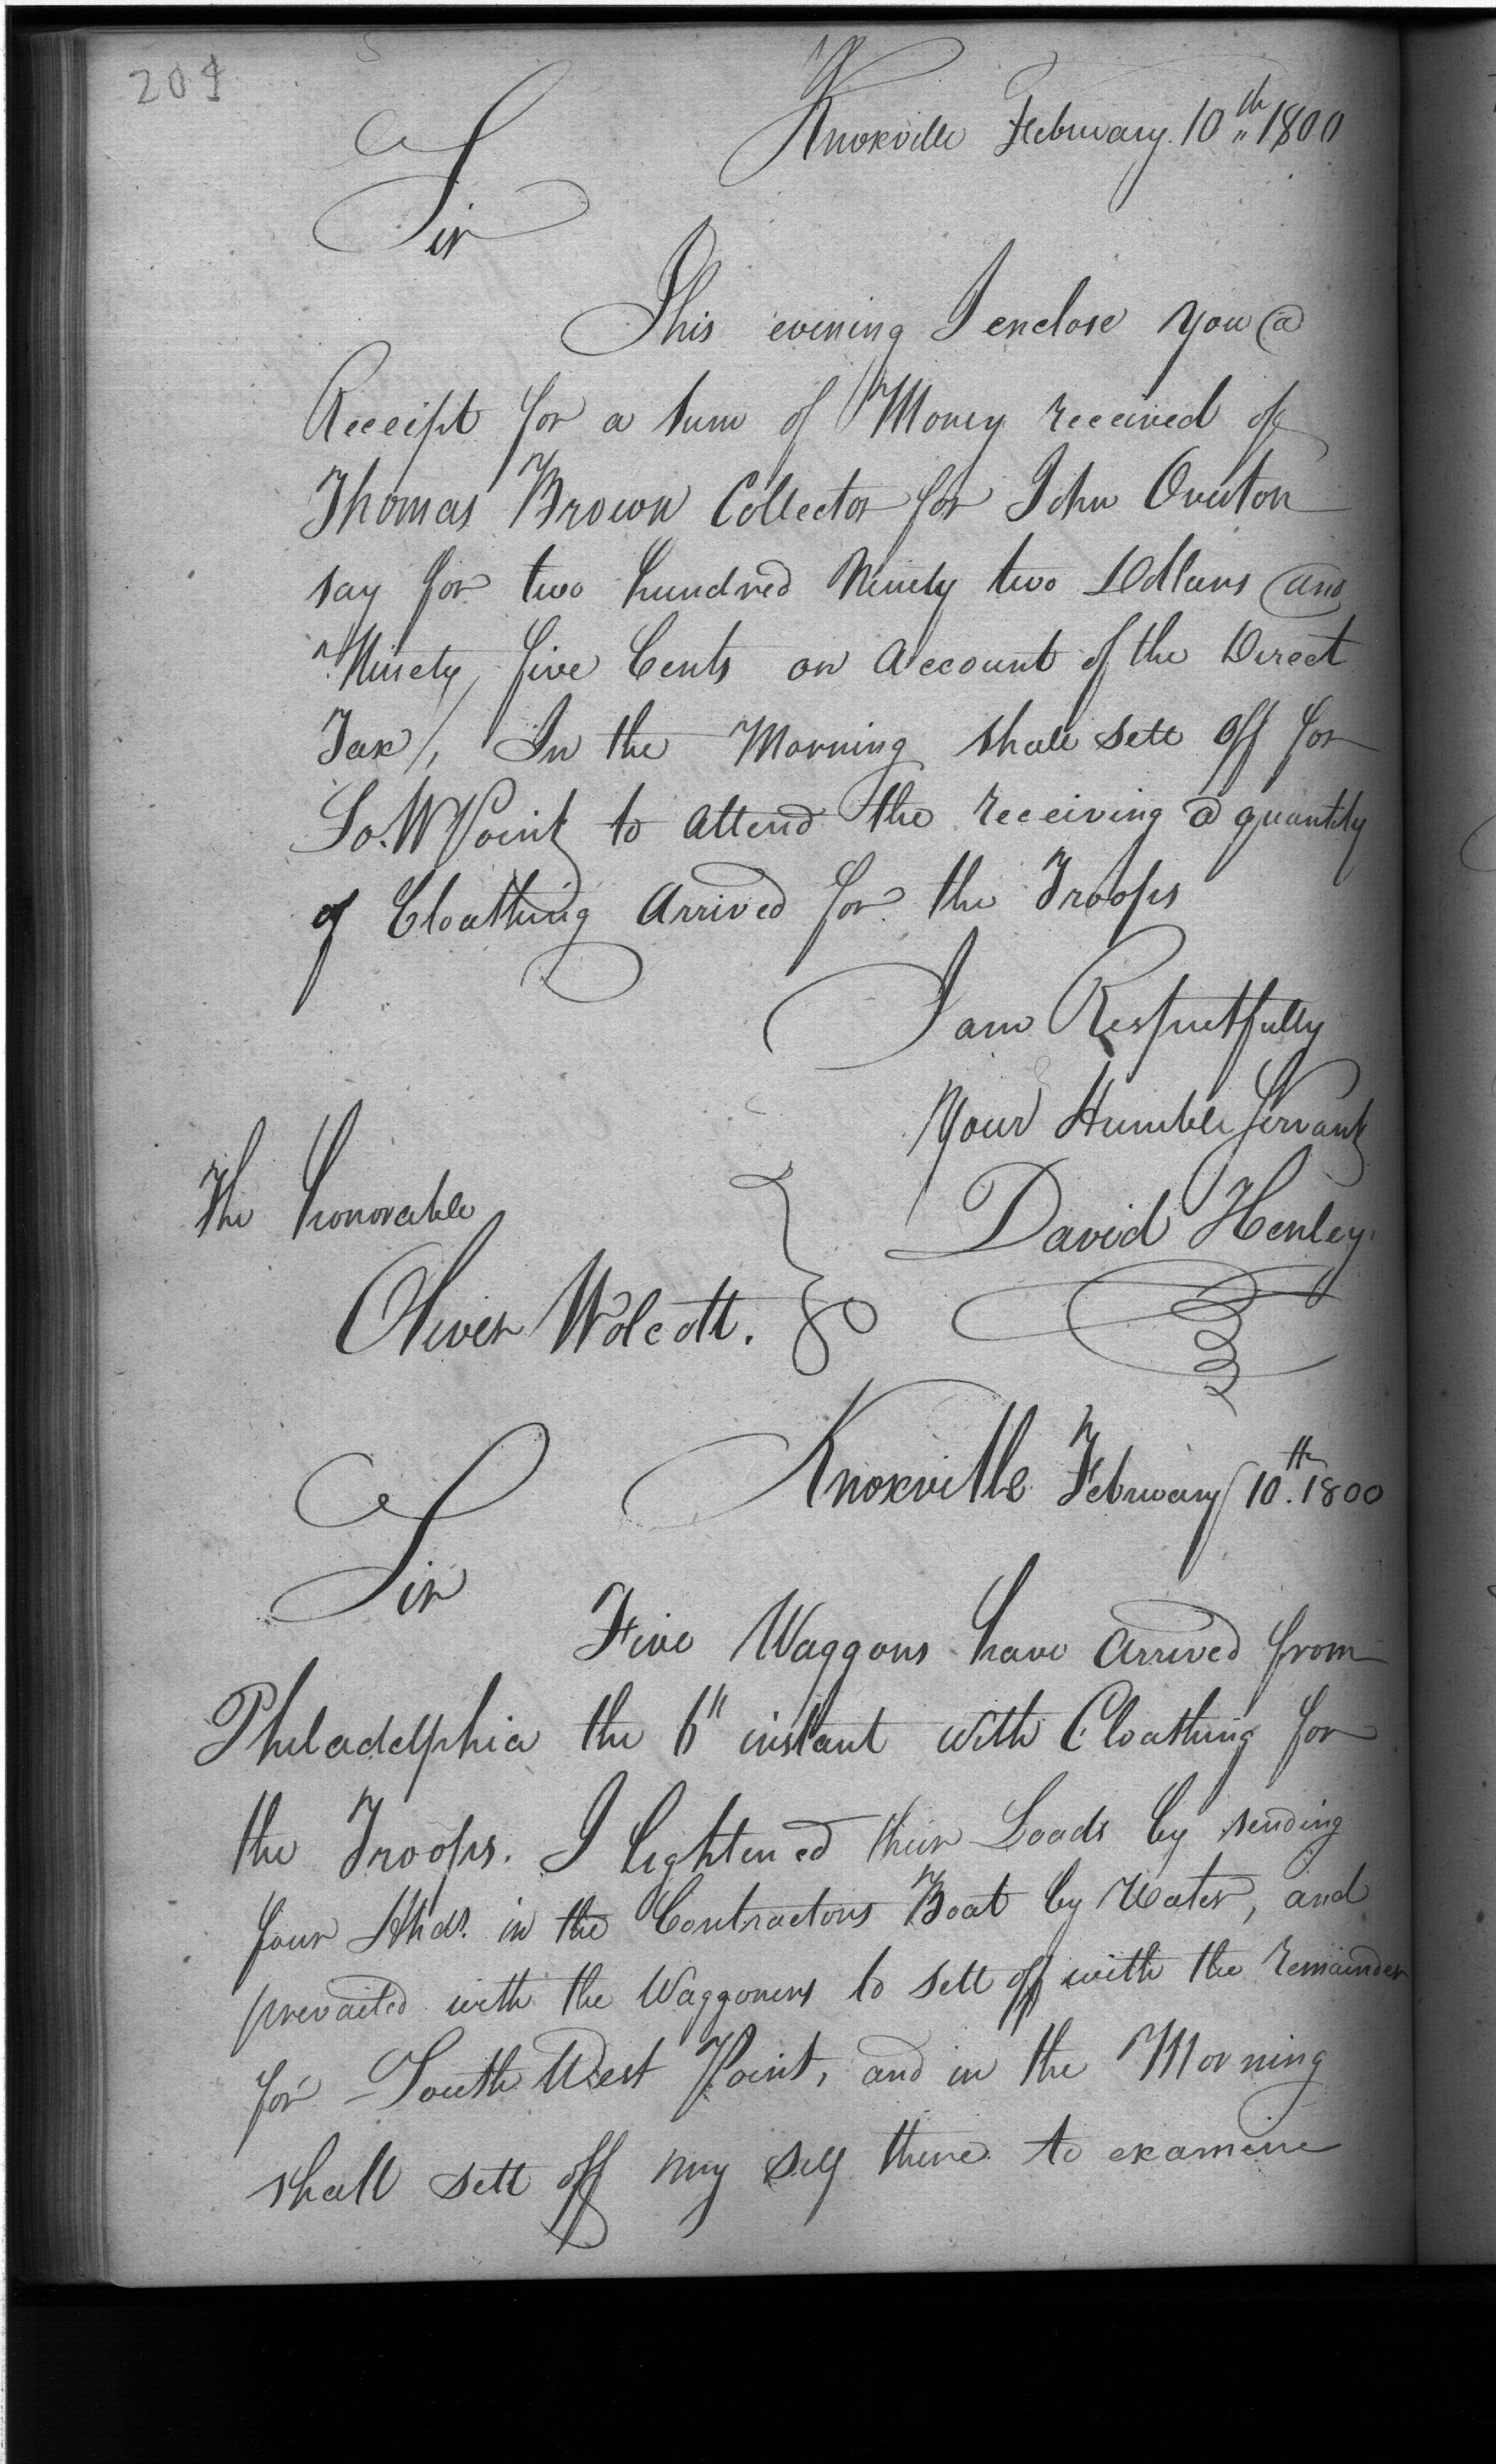 209
Knoxville February 10th 1800
Sir
This evening I enclose you a
Receipt for a sum of Money received of
Thomas Brown Collector for John Overton
say for two hundred Ninety two Dollars and
Ninety five Cents on Account of the Direct
Tax/, In the Morning shall sett off for
So. W Point to attend the receiving a quantity
of Cloathing Arrived for the Troops
I am Respectfully
Your Humble Servant
The honorable
David Henley
Oliver Wolcott.
Knoxville February 10th. 1800
Sir
Five Waggons have arrived from
Philadelphia the 6" instant with Cloathing for
the Troops. I lightened their Loads by sending
four Hhds. in the Contractors Boat by Water, and
prevailed with the Waggoners to sett off with the remainder
for South West Point, and in the Morning
shall sett off my self there to examine